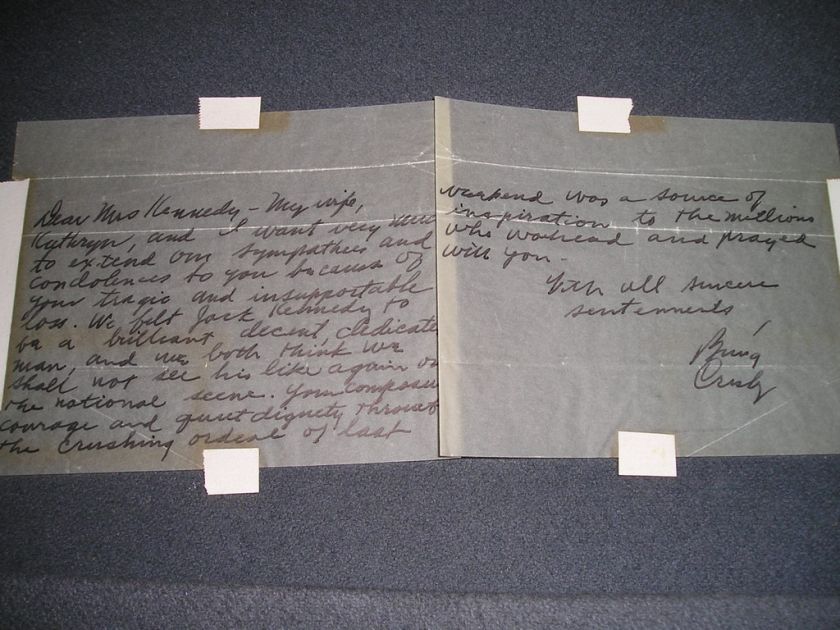 Dear Mrs Kennedy - My wife,
Kathryn, and I want very
to extend our sympathies and
condolences to you because of
your tragic and insupportable
loss. We felt Jack Kennedy to
be a brilliant, decent, dedicate
man, and we both think we
shall not see his like again on
the national scene. Your composu
courage and quiet dignity throuout
the crushing ordeal of last
weekend was a source of
inspiration to the millions
who watched and prayed
with you -
With all sincere
sentiments,
Bing
Crosby